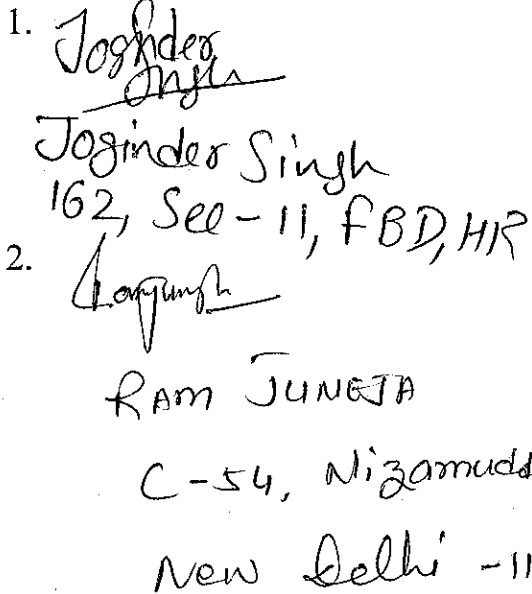 1. Joginder
Singh
Joginder Singh
162, Sec-11, FBD, HR
2.
RAM JUNEJA
C-54, Nizamudd
New Delhi -11